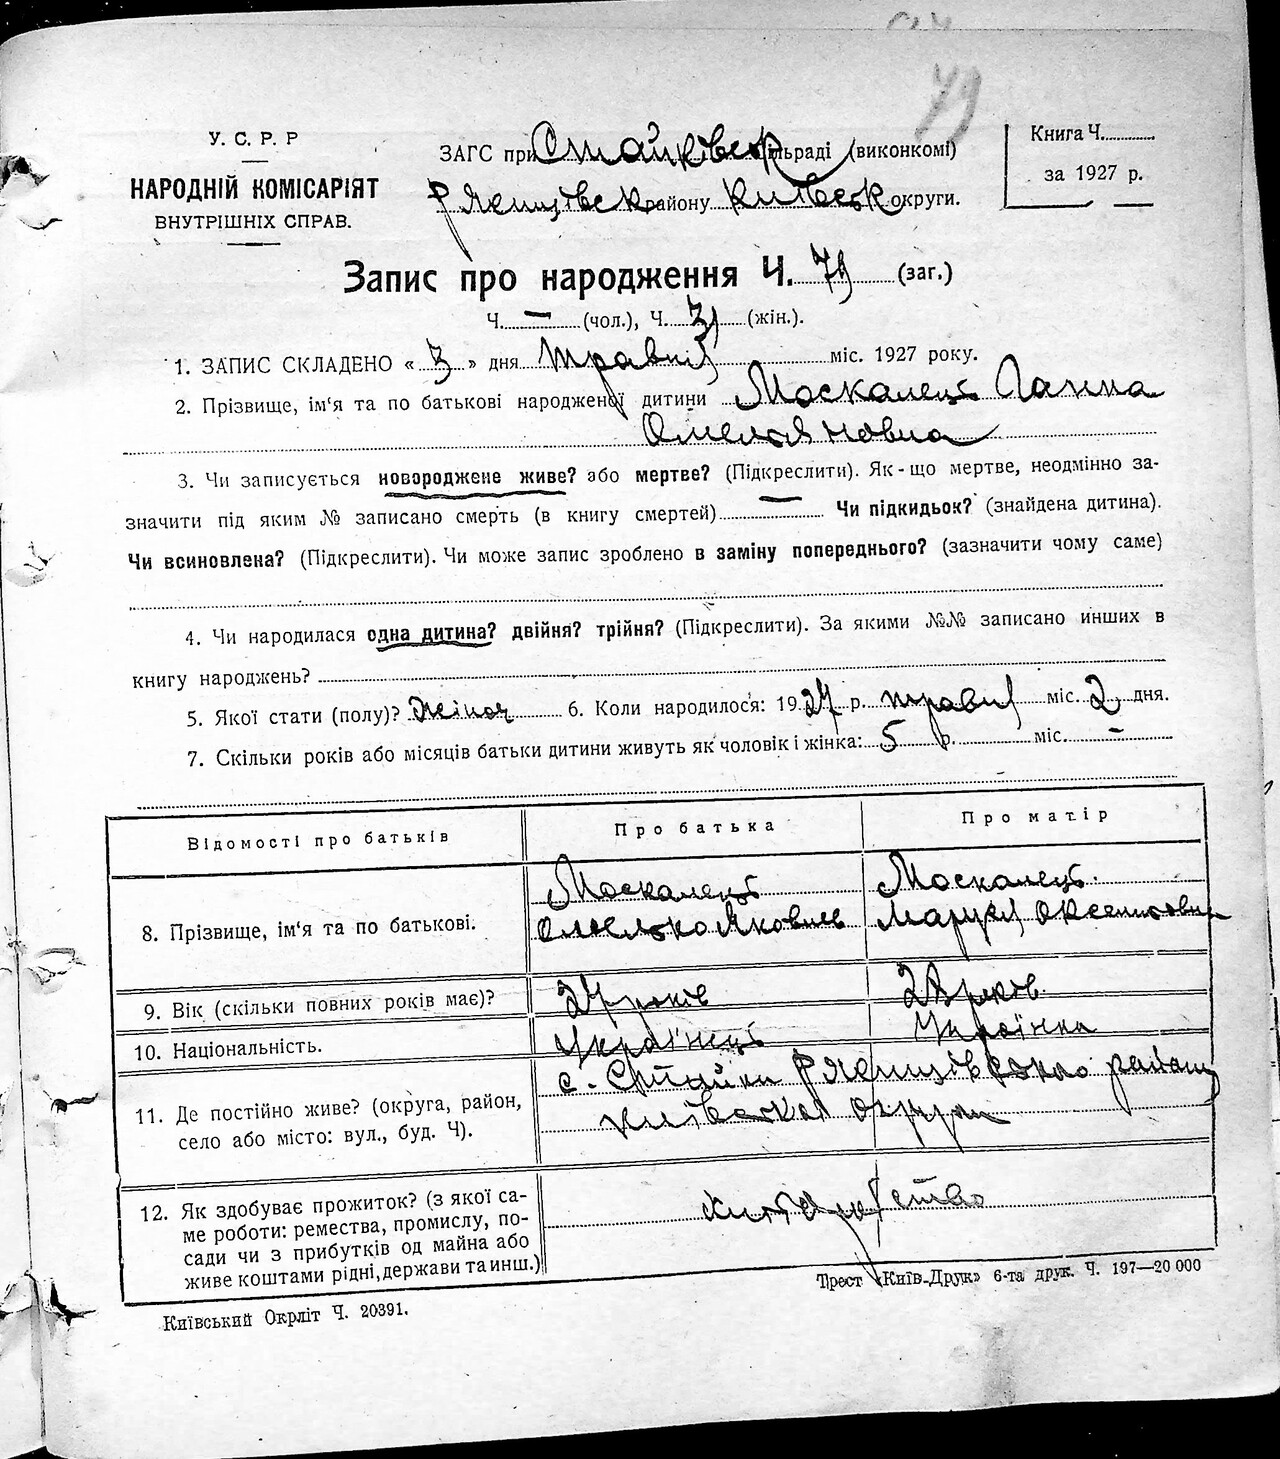 79
У. С. Р. Р
НАРОДНІЙ КОМІСАРІЯТ
ВНУТРІШНІХ СПРАВ.
ЗАГС при Стайківськ сільраді (виконкомі)
Ржищівськ району Київськ округи.
Книга Ч.
за 1927 р.
Запис про народження Ч. 79 (заг.)
Ч. — (чол.), Ч. 31 (жін.).
1. ЗАПИС СКЛАДЕНО « 3 » дня травня міс. 1927 року.
2. Прізвище, ім'я та по батькові народженої дитини Москалець Ганна
Омеляновна
3. Чи записується новороджене живе? або мертве? (Підкреслити). Як-що мертве, неодмінно за-
значити під яким № записано смерть (в книгу смертей) — Чи підкидьок? (знайдена дитина).
Чи всиновлена? (Підкреслити). Чи може запис зроблено в заміну попереднього? (зазначити чому саме)
4. Чи народилася одна дитина? двійня? трійня? (Підкреслити). За якими №№ записано инших в
книгу народжень?
5. Якої стати (полу)? жіноч 6. Коли народилося: 1927 р. травня міс. 2 дня.
7. Скільки років або місяців батьки дитини живуть як чоловік і жінка: 5 р. міс. –
Відомості про батьків
Про батька
Про матір
8. Прізвище, ім'я та по батькові.
Москалець
Омелько Яковив
Москалець
Маруся Оксентовна
9. Вік (скільки повних років має)?
27 років
років
10. Національність.
Українець
Українка
11. Де постійно живе? (округа, район,
село або місто: вул., буд. Ч).
с. Стайки Ржищівського району
Київської округи
12. Як здобуває прожиток? (з якої са-
ме роботи: ремества, промислу, по-
сади чи з прибутків од майна або
живе коштами рідні, держави та инш.)
хліборобство
Київський Окрліт Ч. 20391.
Трест «Київ-Друк» 6-та друк. Ч. 197—20 000